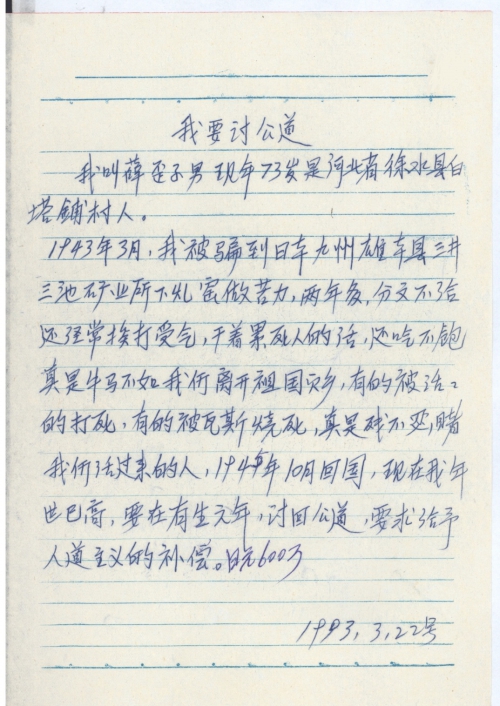 我要讨公道
我叫薛歪子男现年73岁是河北省徐水县白
塔铺村人。
1943年3月,我被骗到日本九州雄本县三井
三池矿业所下乩窑做苦力,两年多,分文不给
还经常挨打受气,干着累死人的活,还吃不饱
真是牛马不如我们离开祖国 乡,有的被活:
的打死,有的被瓦斯烧死,真是残不 睹
我们活过来的人,1945年10月回国,现在我年
世已高,要在有生元年,讨回公道,要求给予
人道主义的补偿。日元600万
1993,3,22号